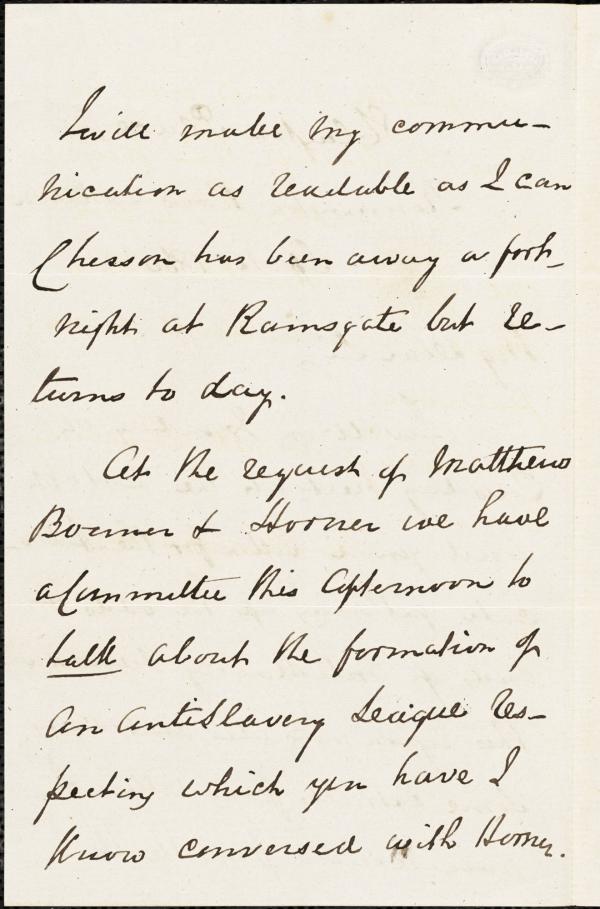 I will make my commu-
nication as readable as I can
Chesson has been away a fort-
night at Ramsgate but re-
turns to day.
At the request of Matthew
& Horner we have
a Committee this afternoon to
talk about the formation of
an Antislavery League res-
pecting which you have I
know conversed with Horner.